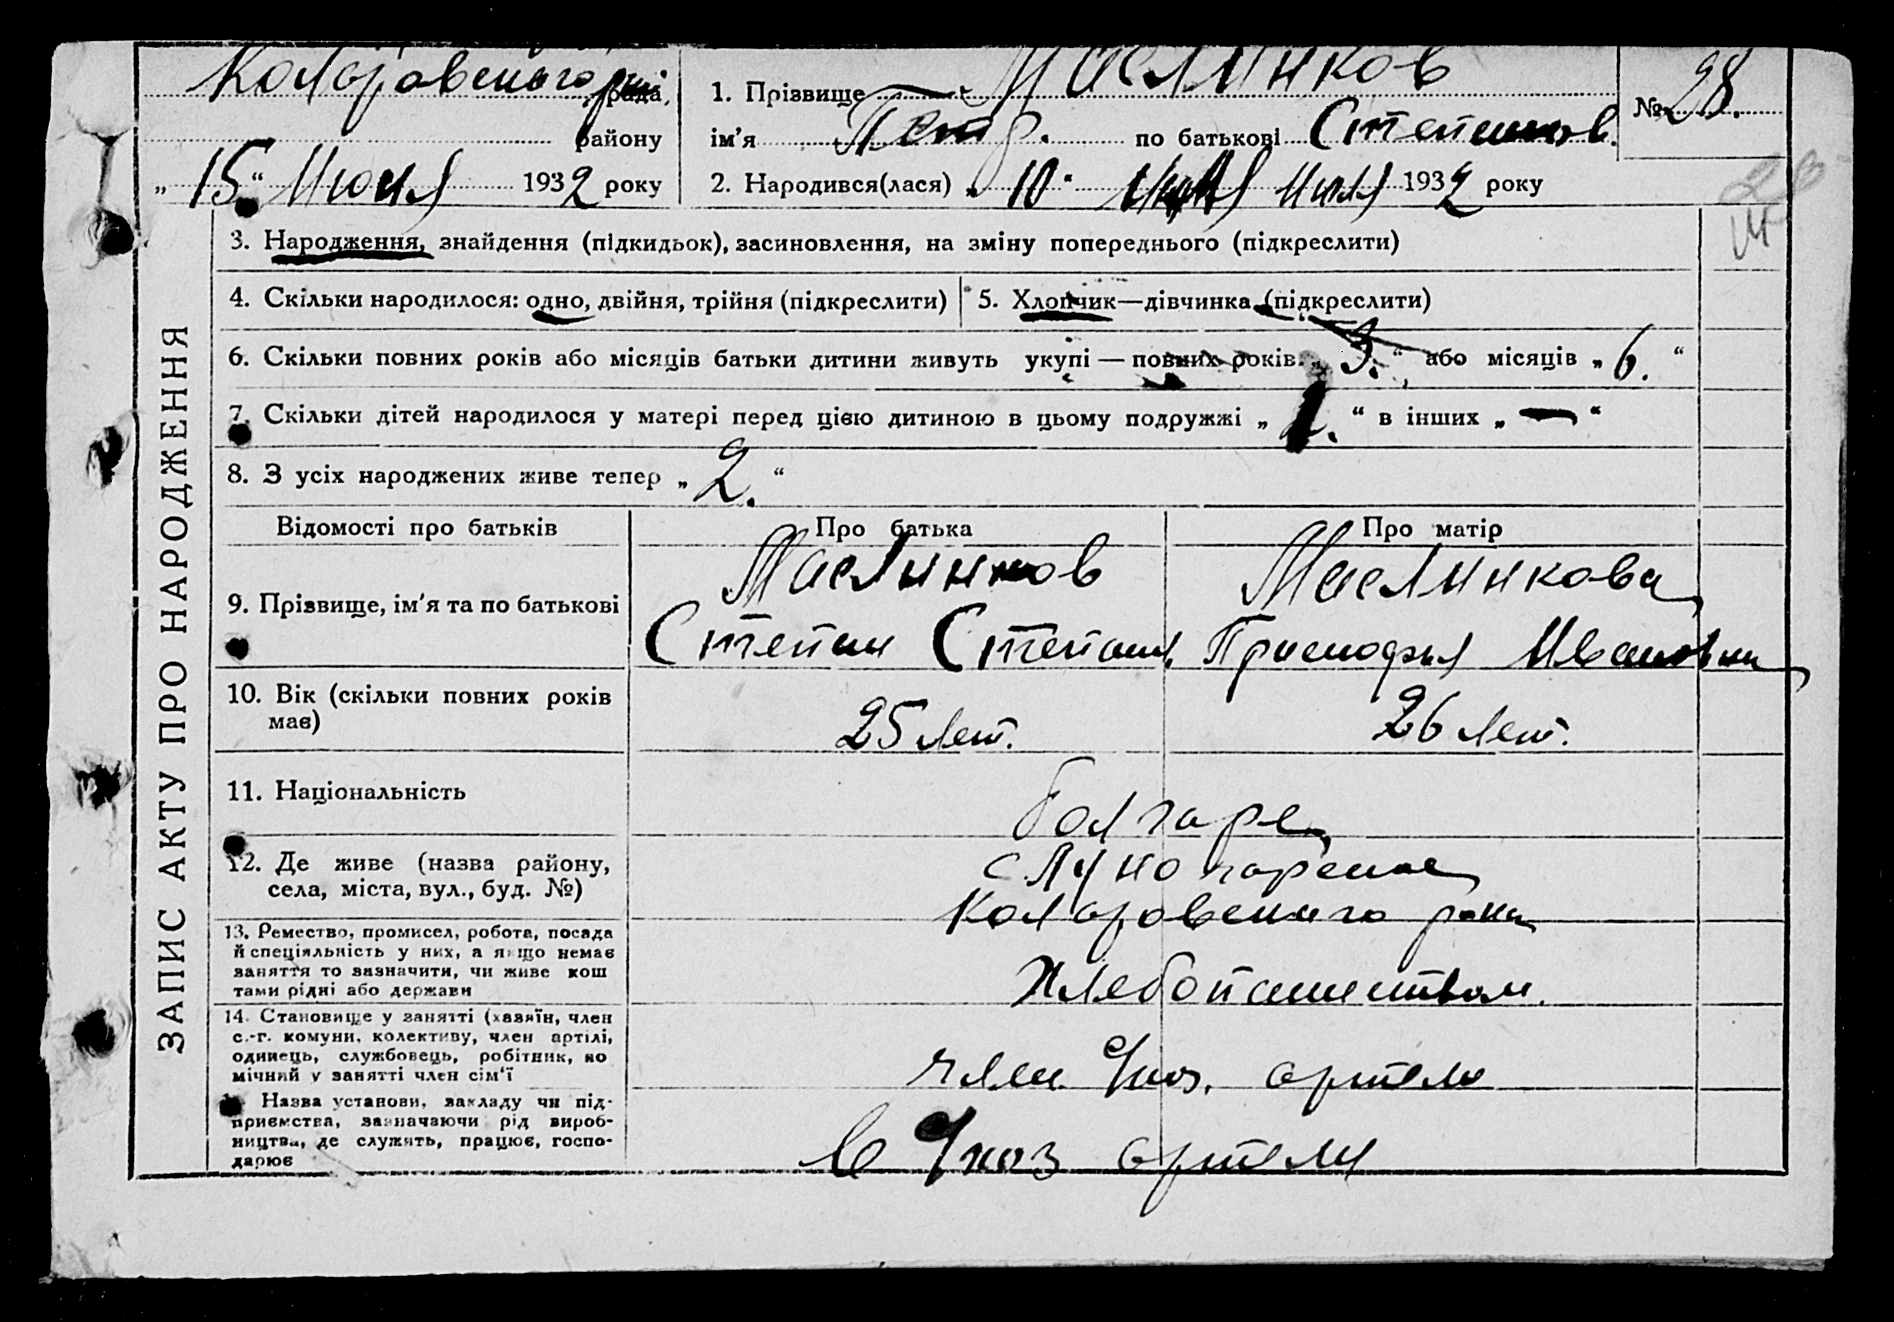 Коларовського р-ну рада,
району
„15“ Июня 1932 року
1. Прізвище Маслинков
ім'я Петр. по батькові Степанов.
2. Народився(лася) „10“ Июня 1932 року
№ 28.
3. Народження, знайдення (підкидьок), засиновлення, на зміну попереднього (підкреслити)
4. Скільки народилося: одно, двійня, трійня (підкреслити)
5. Хлопчик—дівчинка (підкреслити)
6. Скільки повних років або місяців батьки дитини живуть укупі — повних років „3.“ або місяців „6.“
7. Скільки дітей народилося у матері перед цією дитиною в цьому подружжі „1.“ в інших „—“
8. З усіх народжених живе тепер „2.“
ЗАПИС АКТУ ПРО НАРОДЖЕННЯ
Відомості про батьків
Про батька
Про матір
9. Прізвище, ім'я та по батькові
Маслинков
Степан Степан.
Маслинкова
Прискофья Ивановна
10. Вік (скільки повних років
має)
25 лет.
26 лет.
11. Національність
болгаре
12. Де живе (назва району,
села, міста, вул., буд. №)
с Луначарское
Коларовского р-на
13. Ремество, промисел, робота, посада
й спеціяльність у них, а якщо немає
заняття то зазначити, чи живе кош
тами рідні або держави
Хлебопашеством.
14. Становище у занятті (хазяїн, член
с.-г. комуни, колективу, член артілі,
одинець, службовець, робітник, по
мічний у занятті член сім'ї
член с/хоз. артели
Назва установи, закладу чи під-
приємства, зазначаючи рід вироб-
ництва, де служить, працює, госпо-
дарює
в с/хоз артели